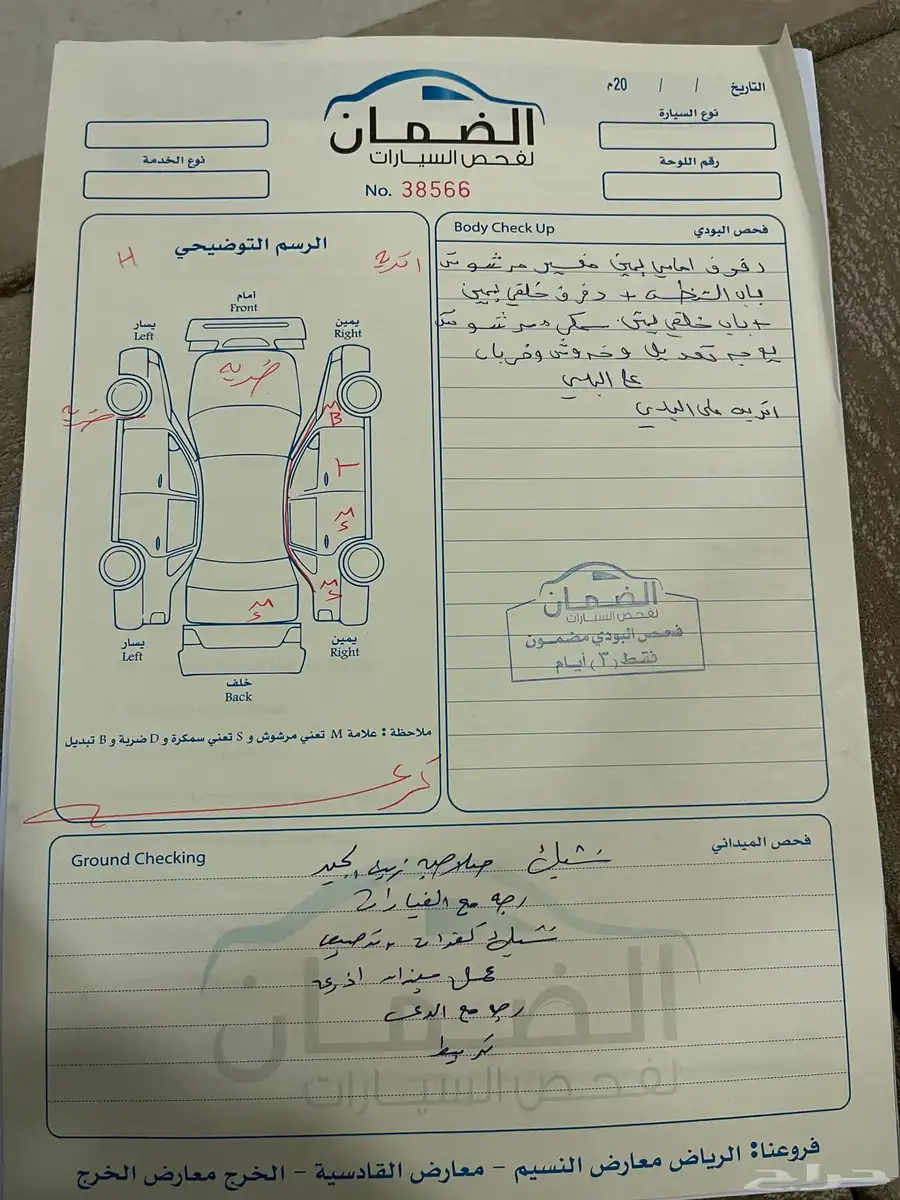 التاريخ / / 20م
نوع السيارة
رقم اللوحة
الضمان
لفحص السيارات
No. 38566
نوع الخدمة
Body Check Up
فحص البودي
رفرف امامي يمين مغير مرشوش
باب + رفرف خلفي يمين
+ باب خلفي يمين سمكره مرشوش
يوجد تعديل وخدوش وضربات
على البدي
اتربه على البدي
الضمان
لفحص السيارات
فحص البودي مضمون
فقط (٣) أيام
الرسم التوضيحي
اتربه
H
أمام
Front
يسار
Left
يمين
Right
ضربه
ضربه
M
B
M
S
M
S
M
S
يسار
Left
يمين
Right
خلف
Back
ملاحظة : علامة M تعني مرشوش و S تعني سمكرة و D ضربة و B تبديل
Ground Checking
فحص الميداني
تشيك
رجه مع الغيارات
تشيك كفرات
عمل ميزان اذرعه
رجه مع
الضمان
لفحص السيارات
فروعنا: الرياض معارض النسيم - معارض القادسية - الخرج معارض الخرج
حراج